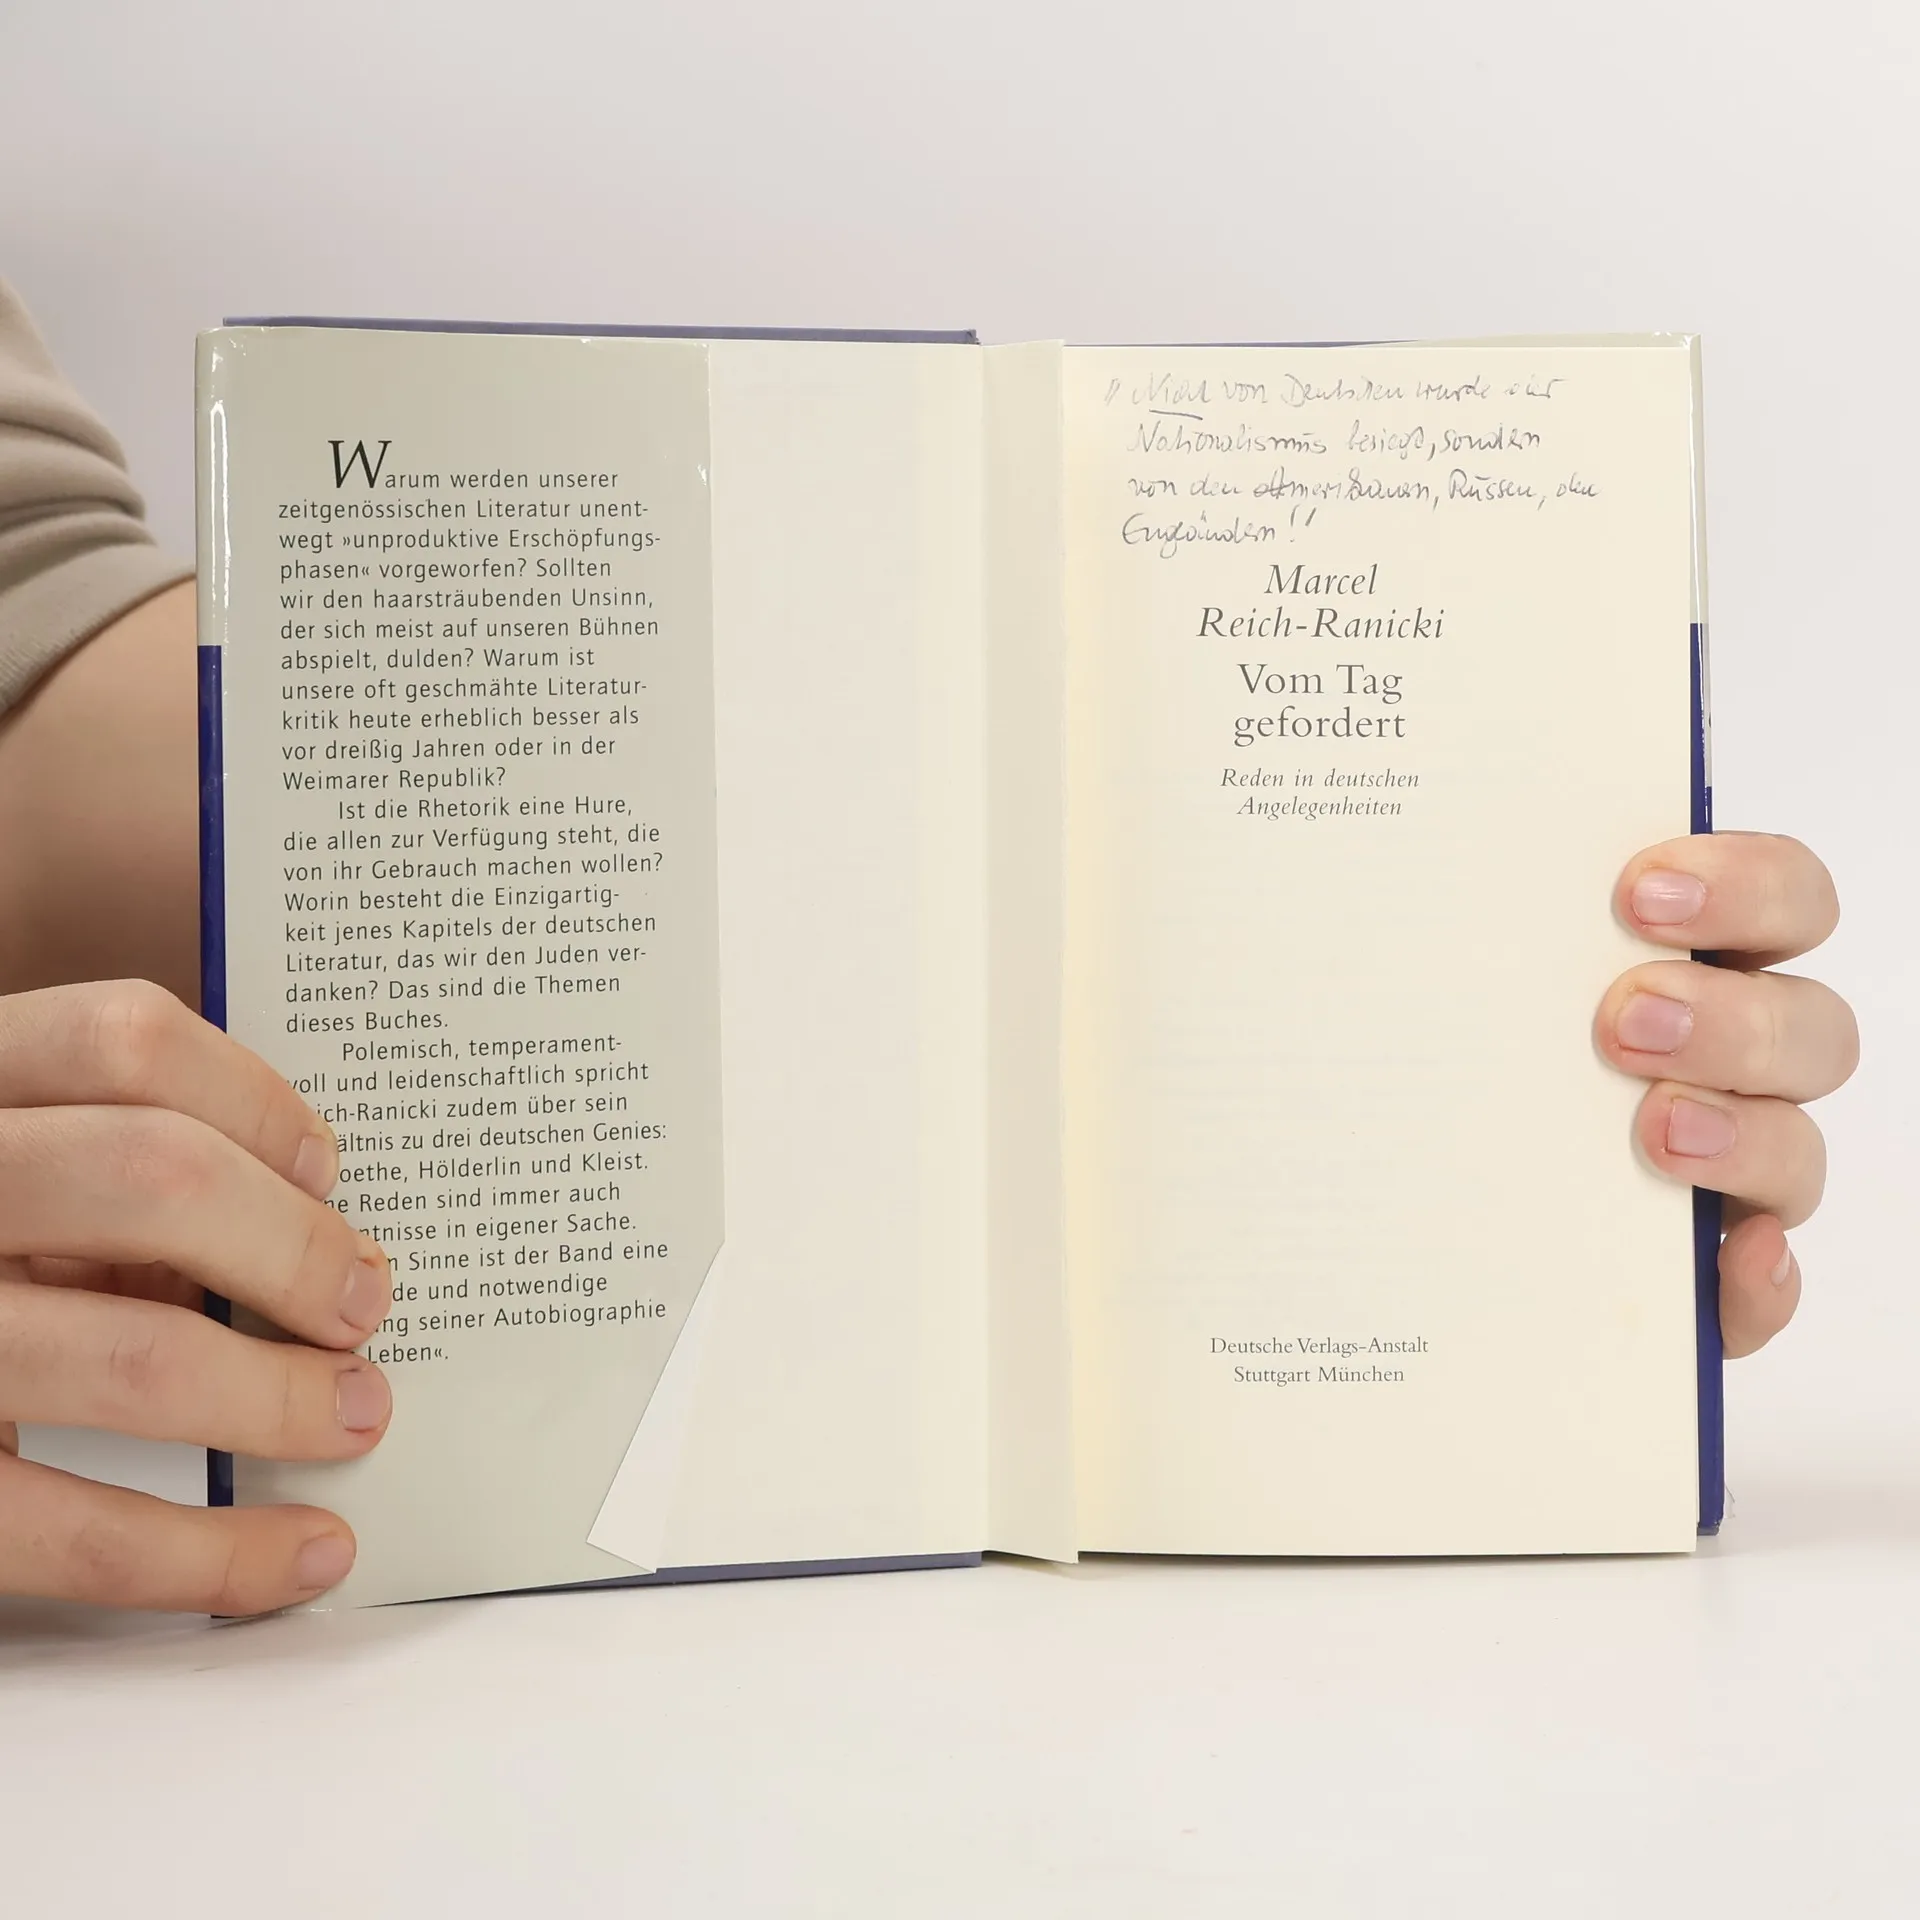 Warum werden unserer
zeitgenössischen Literatur unent-
wegt »unproduktive Erschöpfungs-
phasen« vorgeworfen? Sollten
wir den haarsträubenden Unsinn,
der sich meist auf unseren Bühnen
abspielt, dulden? Warum ist
unsere oft geschmähte Literatur-
kritik heute erheblich besser als
vor dreißig Jahren oder in der
Weimarer Republik?
Ist die Rhetorik eine Hure,
die allen zur Verfügung steht, die
von ihr Gebrauch machen wollen?
Worin besteht die Einzigartig-
keit jenes Kapitels der deutschen
Literatur, das wir den Juden ver-
danken? Das sind die Themen
dieses Buches.
Polemisch, temperament-
voll und leidenschaftlich spricht
ich-Ranicki zudem über sein
ältnis zu drei deutschen Genies:
oethe, Hölderlin und Kleist.
ne Reden sind immer auch
ntnisse in eigener Sache.
n Sinne ist der Band eine
de und notwendige
ng seiner Autobiographie
Leben«.
"Nicht von Deutschen wurde der
Nationalismus besiegt, sondern
von den Amerikanern, Russen, den
Engländern!"
Marcel
Reich-Ranicki
Vom Tag
gefordert
Reden in deutschen
Angelegenheiten
Deutsche Verlags-Anstalt
Stuttgart München